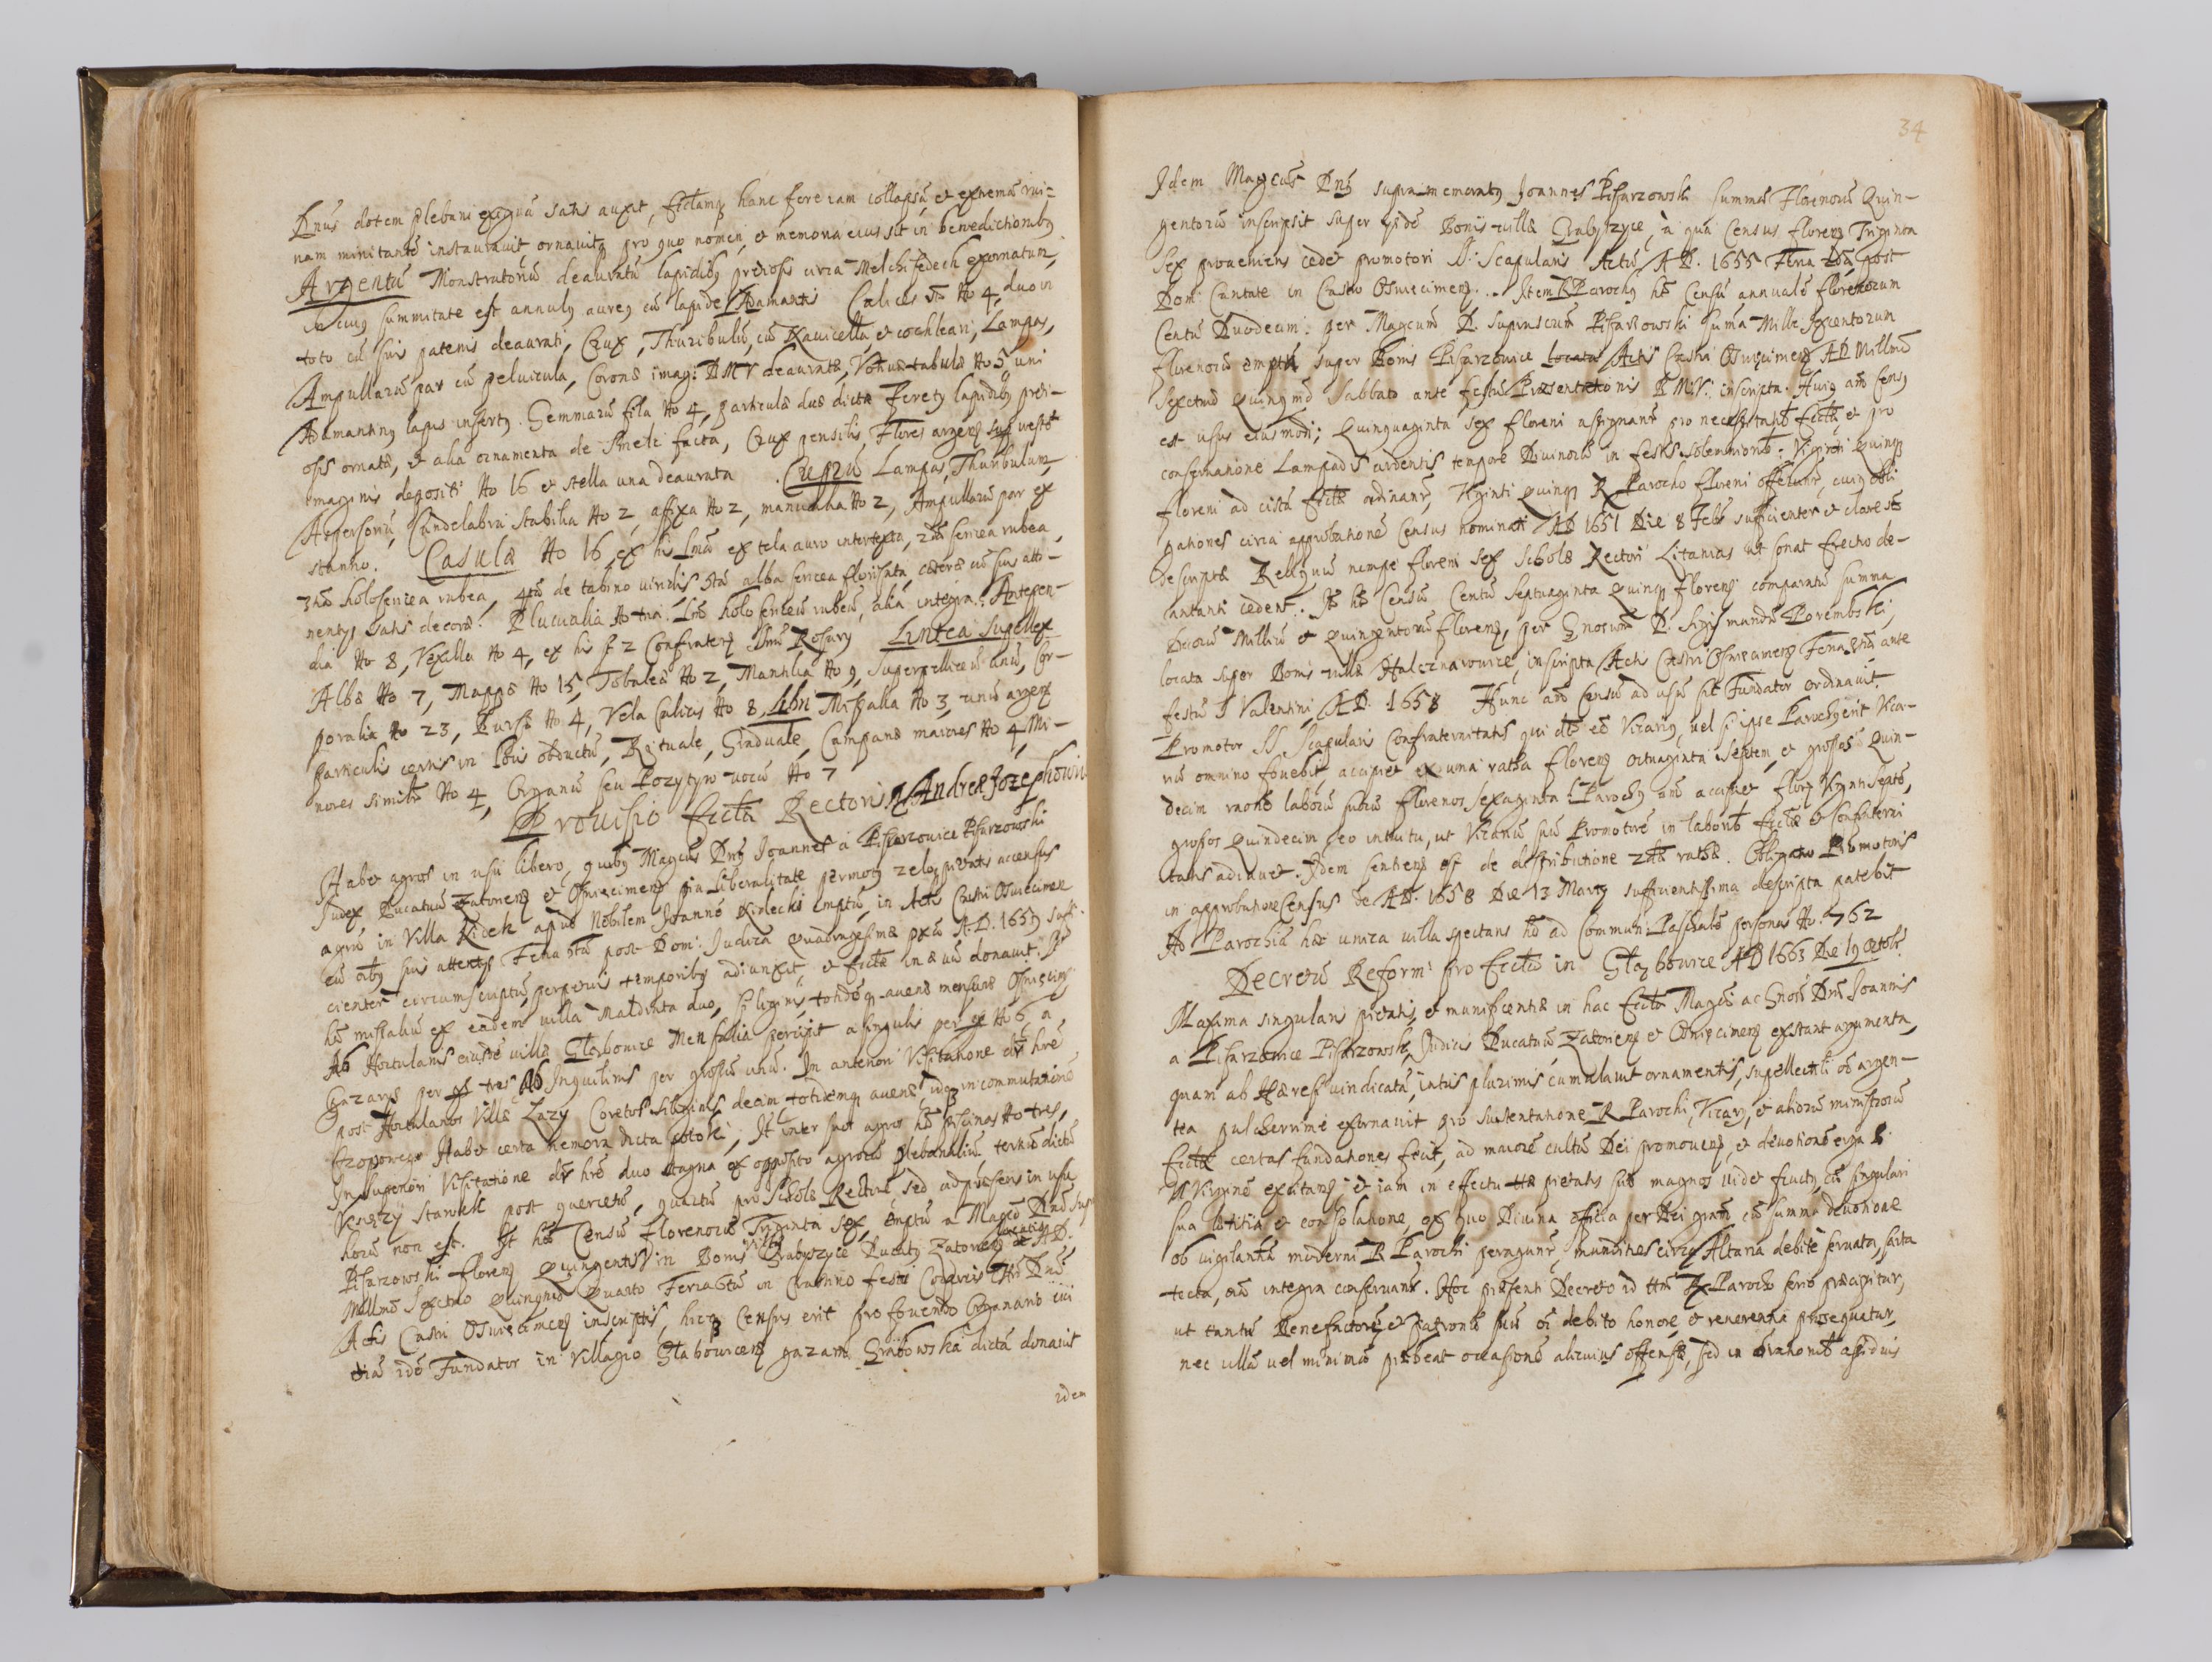 Dnūs dotem plebani exiguā satis auxit, Ecclamq hanc fere iam collapsā et extremā rui=
nam minitantē instauravit ornavitq pro quo nomen, et memoria eius sit in benedictionibq
Argentū Monstratoriū deauratū lapidibq pretiosis circa Melchisedech exornatum,
in cuiq summitate est annulq aureq cū lapide Adamantis Calices No 4, duo in
toto cū suis patenis deaurati, Crux, Thuribulū, cū Navicella et cochleari, Lampas,
Ampullarū par cū pelvicula, Coronæ imag: BMV deauratæ, Votivæ tabulæ No 5 uni
Adamantinq lapis insertq. Gemmarū fila No 4, particulæ duæ dictæ Feretq lapidibq preti-
osis ornatæ, et alia ornamenta de Smelc facta, Crux pensilis, Flores argenq sup vestē
imaginis depositi No 16 et stella una deaurata. Cuprū Lampas, Thuribulum,
Aspersoriū, Candelabra stabilia No 2, affixa No 2, manualia No 2, Ampullarū par ex
stanno. Casulæ No 16, ex his Imā ex tela auro intertexta, 2dā sericea rubea,
3tiā holosericea rubea, 4tā de tabino viridis 5tā alba sericea florisata, cæteræ cū suis atti-
nentijs satis decoræ. Pluvialia No tria Imū holosericeū rubeū, alia integra. Antepen-
dia No 8, Vexilla No 4, ex his 2 Confraterq Smi Rosarij Lintea Supellex
Albæ No 7, Mappæ No 15, Tobaleæ No 2, Mantilia No 9, Superpelliceū unū, Cor-
poralia No 23, Bursæ No 4, Vela Calicis No 8, Libri Missalia No 3, unū argenq
particulis certis in locis obductū, Rituale, Graduale, Campanæ maiores No 4, Mi-
nores similiter No 4, Organū seu Pozytyw vocū No 7
Provisio Ecclæ Rectoris R Andreæ Jozephowic
Habet agros in usū libero, quibq Magcūs Dnq Joannes a Pisarzowice Pisarzowski
Judex Ducatuū Zatorienq et Osviecimenq pia liberalitate permotq zeloq pietatis accensus
agrū in Villa Kicek apud Nobilem Joannē Kirlecki emptū, in Actis Castri Osviecimen
cū oibq suis attentijs Feria 5tā post Dom: Judica Quadragesimæ pxā A.D. 1659 suffi-
cienter circumscriptū, perpetuis temporibq adiunxit, et Ecclæ in ævū donavit. Jt
hē missaliū ex eadem villa Maldrata duo, siliginis, totidēq avenæ mensuræ Osviecimq
Ab Hortulanis eiusdē villæ Głębowice Mensalia percipit a singulis per gr No 6, a
Gazaris per gr tres Ab Inquilinis per grossū unū. In anteriori Visitatione dr hrē
post Hortulanos Villæ Łazy Coretos siliginis decim totidemq avenæ, idq in commutatione
Ezoponeq Habet certa nemora dicta potoki, Jt inter suos agros hē piscinas No tres,
In superiori Visitatione dr hrē duo stagna ex opposito agrorū plebanaliū tertiū dictū
Xsięży stawek post quercetū, quartū pro Scholæ Rectore, sed ad præsens in usu
horū non est. Jt hē Censū florenorū Triginta sex, emptū a Magcō Dnō supra
Pisarzowski florenq Quingentis in Bonis Villæ Grabyszyce Ducatq Zatorienq locatis de AD.
Millmō Sexcmo Quingmō Quarto Feria 6tā in Crastino festi Corporis Xti Dnī
Actis Castri Osviecimenq inscriptis, hicq Census erit pro fovendo Organario cui
etiā idē Fundator in Villagio Głębowicenq gazam Grabowska dictā donavit
idem
34
Idem Magcūs Dnq supra memoratq Joannes Pisarzowski summā Florenorū Quin-
gentorū inscripsit super ijsdē Bonis villæ Grabyszyce, à quā Census florenq Triginta
Sex proveniens cedet promotori SS: Scapularis Actū A D. 1655 Feria 2dā post
Dom: Cantate in Castro Osviecimenq. Item R Parochq hē Censū annualē florenorum
Centū Duodecim: per Magcum D. suprascrum Pisarzowski suma Mille sexcentorum
florenorū emptū super Bonis Pisarzowice locata Actis Castri Osviecimenq AD Millmō
Sexcmo Quingmō Sabbato ante festū Præsentationis BMV. inscripta. Huiq aūt Censq
est usus eiusmodi; Quinquaginta sex floreni assignantr pro necessitatib Ecclæ, et pro
conservatione Lampadis ardentis tempore Divinorū in festis solemniorib: Viginti quinq
floreni ad cistā Ecclæ ordinantr, Viginti quinq R Parocho floreni offeruntr, cuiq obli
gationes circa approbationē Census nominati AD 1651 Die 8 Febr sufficienter et clare st
descriptæ Reliquū nempe floreni sex Scholæ Rectori Litanias ut sonat Erectio de-
cantanti cedent. Jt hē Censū Centū Septuaginta Quinq florenq comparatū summa
Duorū Milliū et Quingentorū florenq, per Gnosum D. Sigismundū Porembski,
locata super Bonis villæ Halcznarowice, inscripta Actis Castri Osviecimenq Feria 5tā ante
festū S Valentini, A D. 1658 Hunc aūt Censū ad usū sic Fundator ordinavit
Promotor SS Scapularis Confraternitatis qui dr eē Vicariq, vel si ipse Parochq erit Vica-
riū omnino fovebit, accipiet ex una ratha florenq octuaginta septem, et grossos Quin-
decim ratione laborū suorū florenos sexaginta: Parochq aūt accipiet florq Viginti septē,
grossos Quindecim eo intuitu, ut Vicariū suū Promotorē in laborib Ecclæ et Confraterni
tatis adiuvet. Idem sentienq est de distributione 2dæ rathæ. Obligatio Promotoris
in approbatione Census de AD. 1658 Die 13 Martij sufficientissima descripta patebit
Ad Parochiā hāc unica villa spectans hē ad Commun: Paschalē personas No. 762
Decretū Reform: pro Eccla in Głębowice AD 1663 Die 19 octobr
Maxima singularis pietatis, et munificentiæ in hac Eccla Magci ac Gnosi Dni Joannis
a Pisarzowice Pisarzowski, Judicis Ducatuū Zatorienq et Osviecimenq exstant argumenta,
quam ab Hæresi vindicatā, intus plurimis cumulavit ornamentis, supellectili ob argen-
tea pulcherrime exornavit pro sustentatione R Parochi, Vicarij, et aliorū ministrorū
Ecclæ certas fundationes fecit, ad maiorē cultū Dei promovenq, et devotionē erga B
M Virginē excitanq, et iam in effectu pietatis suæ magnos videt fructq, cū singulari
sua lætitia et consolatione, ex quo Divina officia per Dei gratiā cū summa devotione
ob vigilantiā moderni R Parochi peraguntr, mundities circa Altaria debite servatur, sarta
tecta, oīa integra conservantr. Hoc præsenti Decreto id ttm R Parocho serio præcipitur,
ut tantū Benefactorē, et patronū suū oī debito honore, et reverentia prosequatur,
nec ullā vel minimā præbeat occasionē alicuius offensæ, sed in orationib assiduis